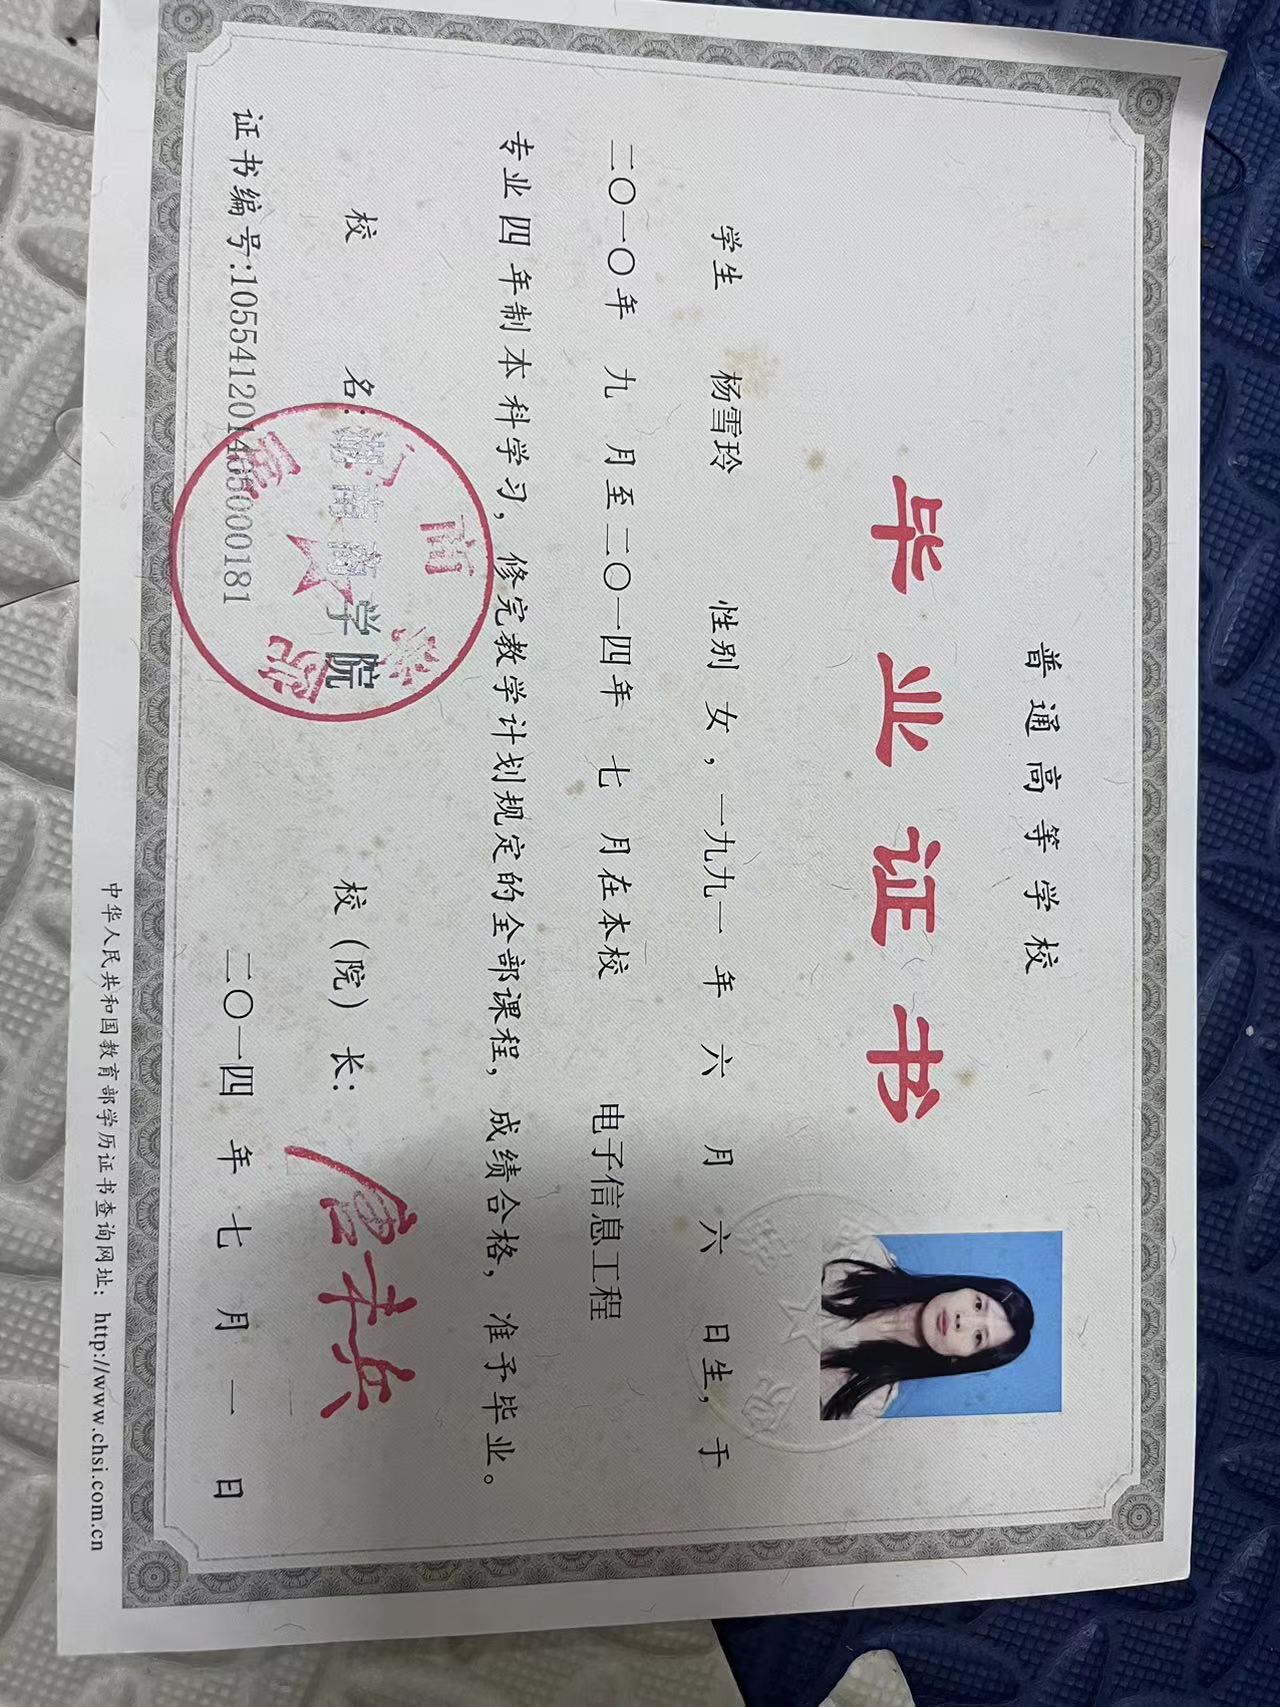 普通高等学校
毕业证书
学生 杨雪玲 性别 女，一九九一 年 六 月 六 日生，于
二〇一〇年 九 月至二〇一四年 七 月在本校 电子信息工程
专业 四 年制本科学习，修完教学计划规定的全部课程，成绩合格，准予毕业。
校 名：湖南商学院 校（院）长：唐未兵
证书编号:105541201405000181 二〇一四 年 七 月 一 日
中华人民共和国教育部学历证书查询网址：http://www.chsi.com.cn